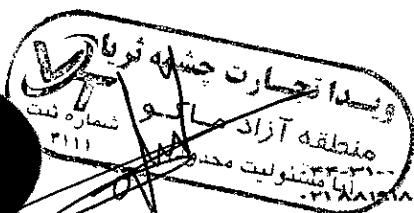 ویدا تجارت چشمه ثریا
منطقه آزاد ماکو
شماره ثبت
۳۱۱۱
با مسئولیت محدود